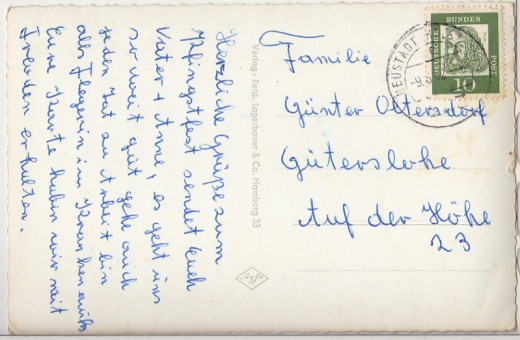 Herzliche Grüße zum
Pfingstfest sendet Euch
Vater + Anne, es geht uns
so weit gut gehe auch
jeden Tag zu Arbeit bin
als Flegerin im Krankenhauß
Eure Karte haben wir mit
Freuden erhalten.
Verlag: Ferd. Lagerbauer & Co. Hamburg 33
Agfa
Familie
Günter Oltersdorf
Güterslohe
Auf der Höhe
23
NEUSTADT
DEUTSCHE BUNDES POST
10